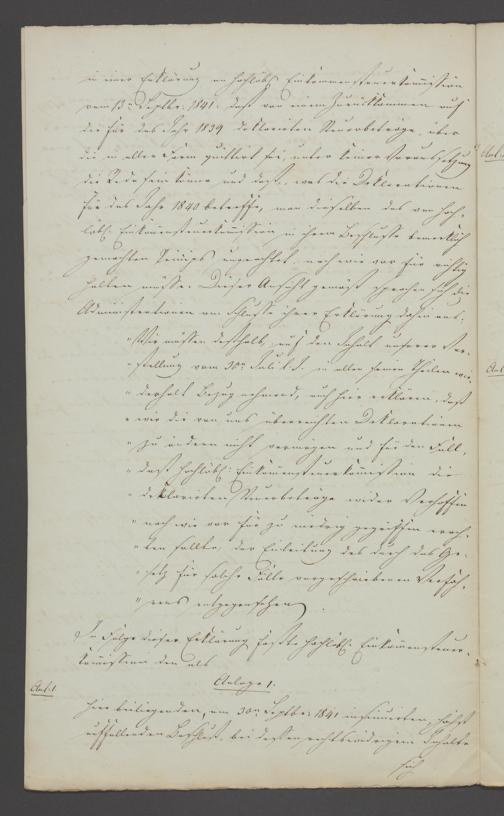 in einer Erklärung an hochlöbl. Einkommensteuerkommission
vom 13ⁿ Septber. 1841. daß von einem Zurückkommen auf
die für das Jahr 1839 deklarirten Steuerbeträge, über
die in aller Form quittirt sei, unter keiner Voraussetzung
die Rede sein könne und daß, was die Deklarationen
für das Jahr 1840 betreffe, man dieselben des von hoch-
löbl. Einkommensteuerkommission in ihrem Beschlusse bemerklich
gemachten Princips ungeachtet, nach wie vor für richtig
halten müsse. Dieser Ansicht gemäß sprachen sich die
Administrationen am Schlusse ihrer Erklärung dahin aus:
„Wir müssen deßhalb, auf den Inhalt unserer Vor-
„stellung vom 30ⁿ Juli l. J. in allen seinen Theilen wie-
„derholt Bezug nehmend, auch hier erklären, daß
„wir die von uns überreichten Deklarationen
„zu ändern nicht vermögen und für den Fall,
„daß hochlöbl. Einkommensteuerkommission die
„deklarirten Steuerbeträge wider Verhoffen
„nach wie vor für zu niedrig gegriffen erach-
„ten sollte, der Einleitung des durch das Ge-
„setz für solche Fälle vorgeschriebenen Verfah-
„rens entgegensehen.
In Folge dieser Erklärung faßte hochlöbl. Einkommensteuer-
kommission den als
Anlage 1.
Anl. 1.
hier beiliegenden, am 30ⁿ Septber. 1841 insinuirten, höchst
auffallenden Beschluß, bei dessen rechtswidrigem Inhalte
sich